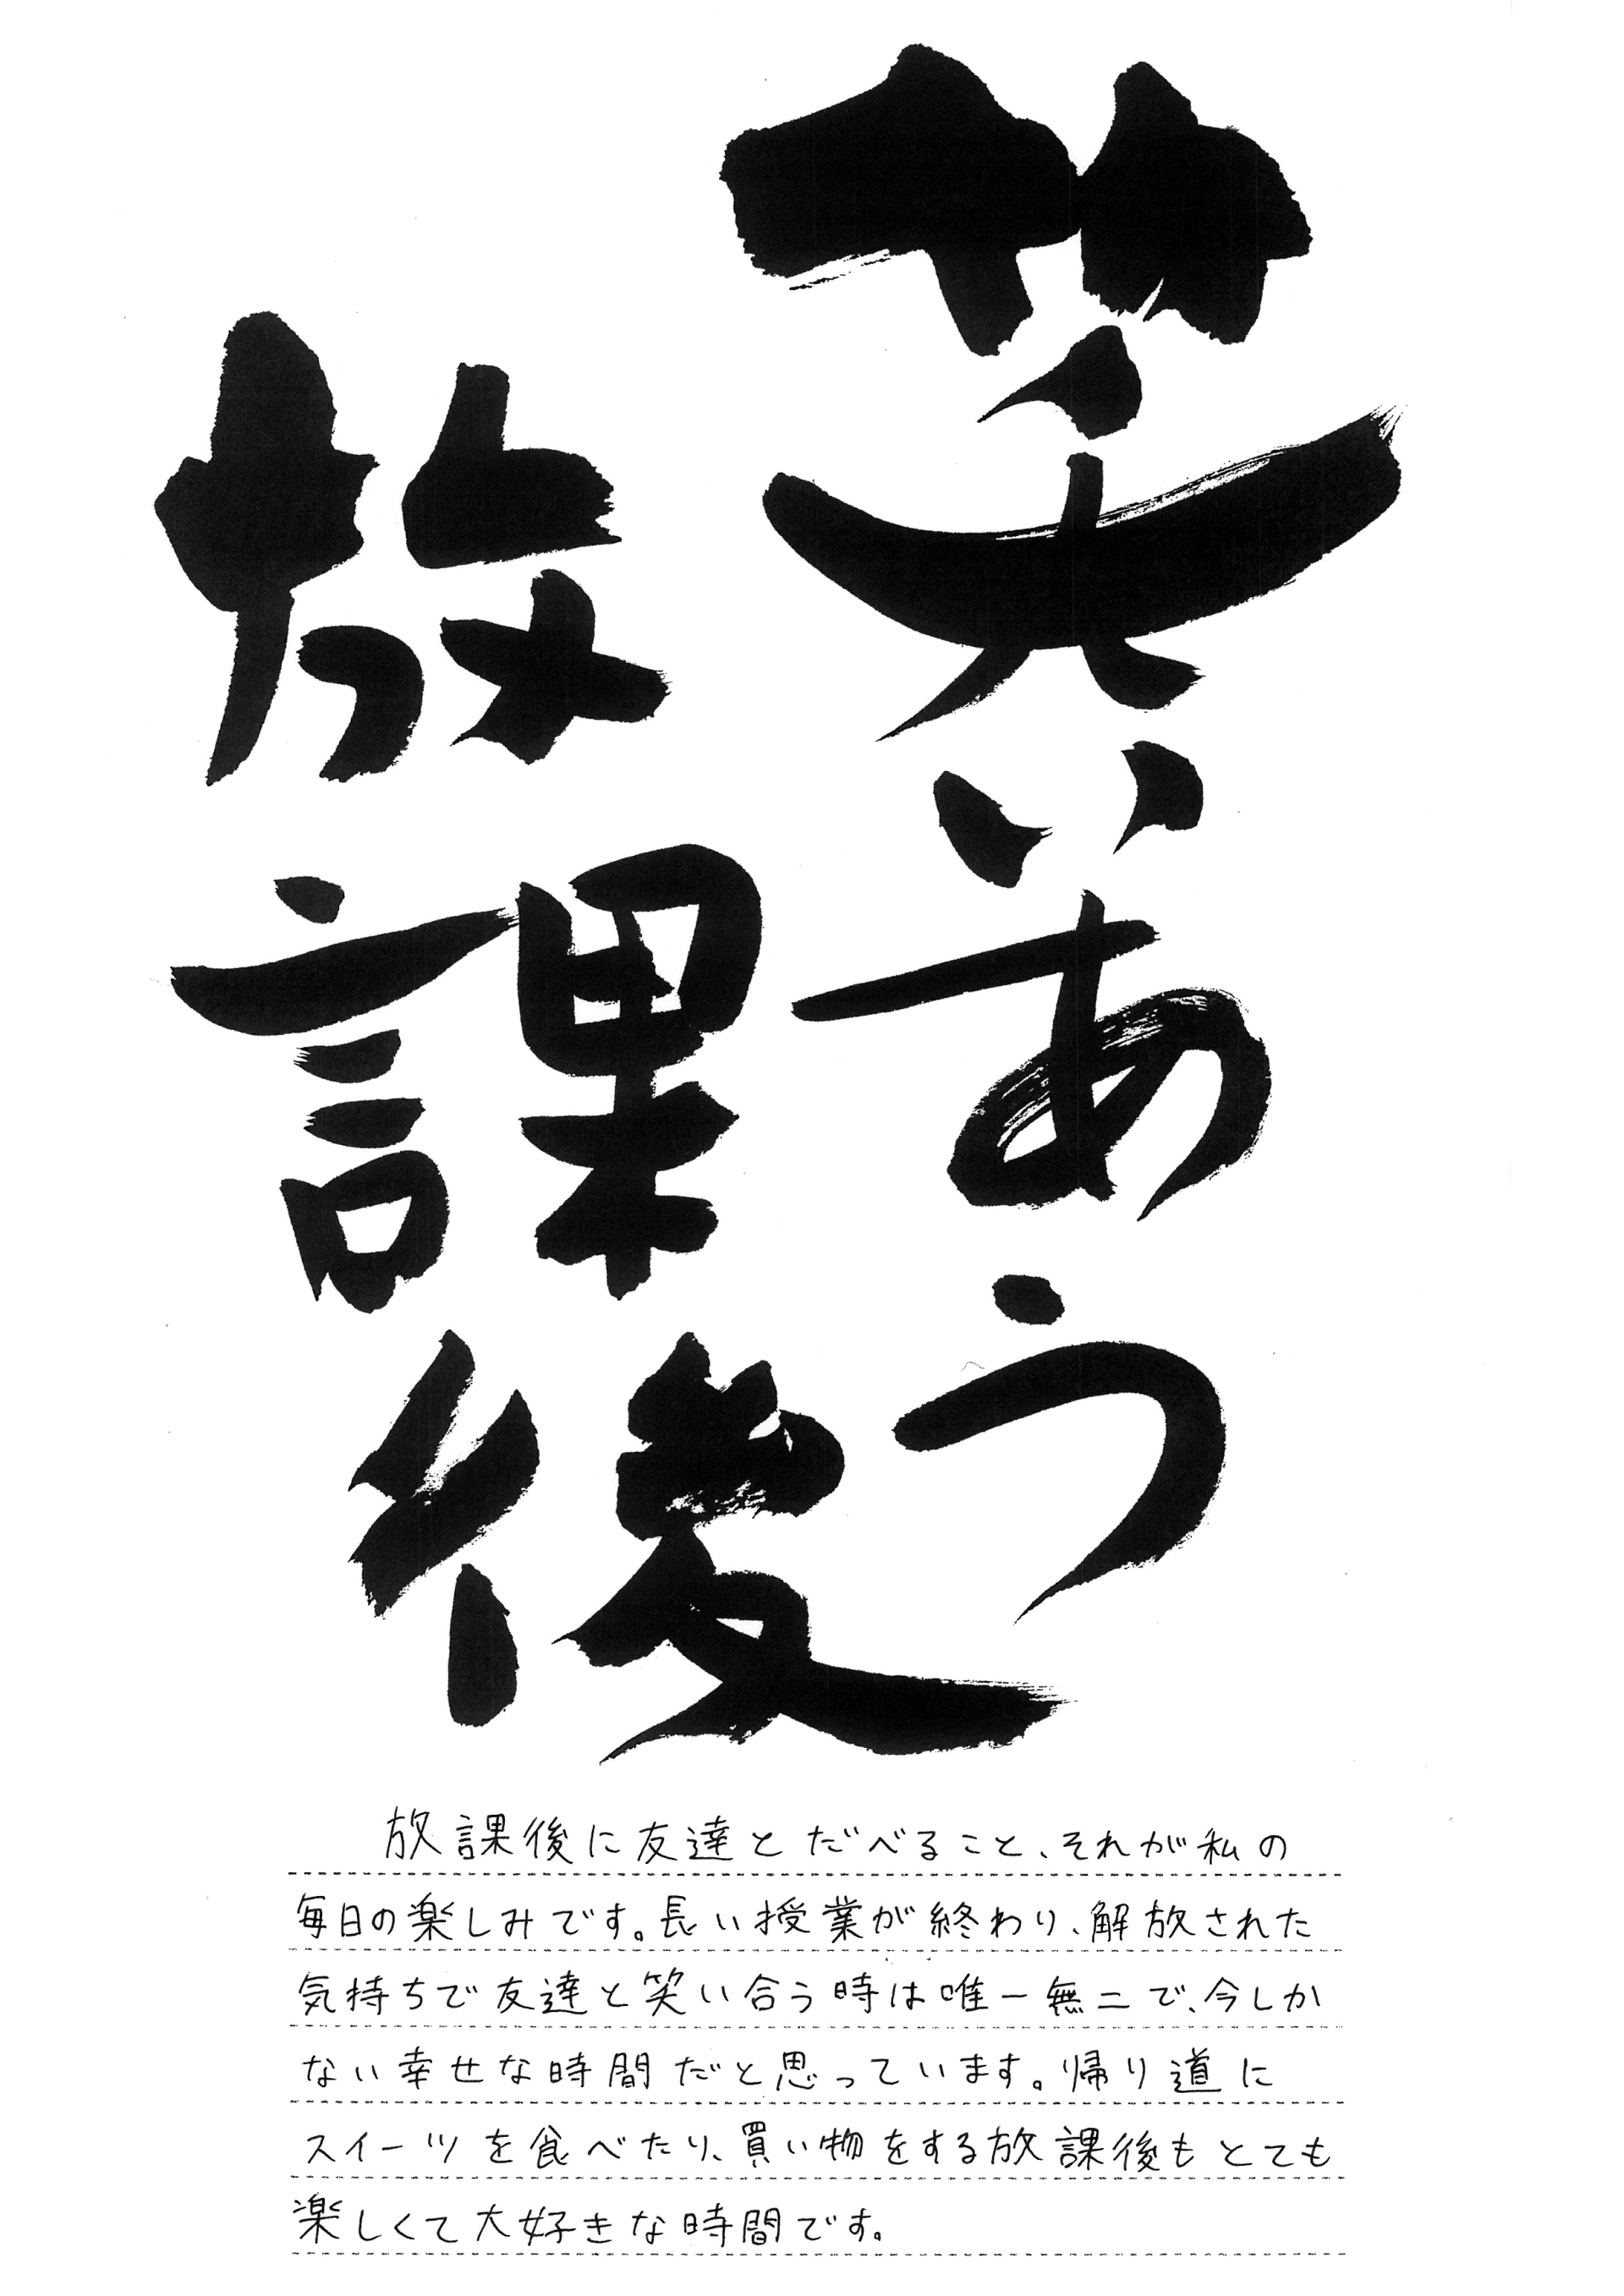 笑いあう
放課後
放課後に友達とだべること、それが私の
毎日の楽しみです。長い授業が終わり、解放された
気持ちで友達と笑い合う時は唯一無二で、今しか
ない幸せな時間だと思っています。帰り道に
スイーツを食べたり、買い物をする放課後もとても
楽しくて大好きな時間です。